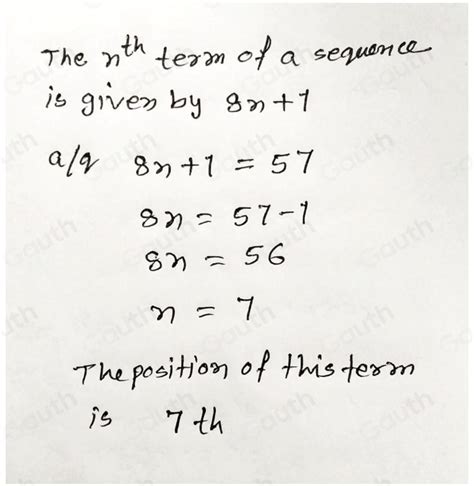 The nth term of a sequence
is given by 8n+1
a/q 8n+1 = 57
8n = 57-1
8n = 56
n = 7
The position of this term
is 7th